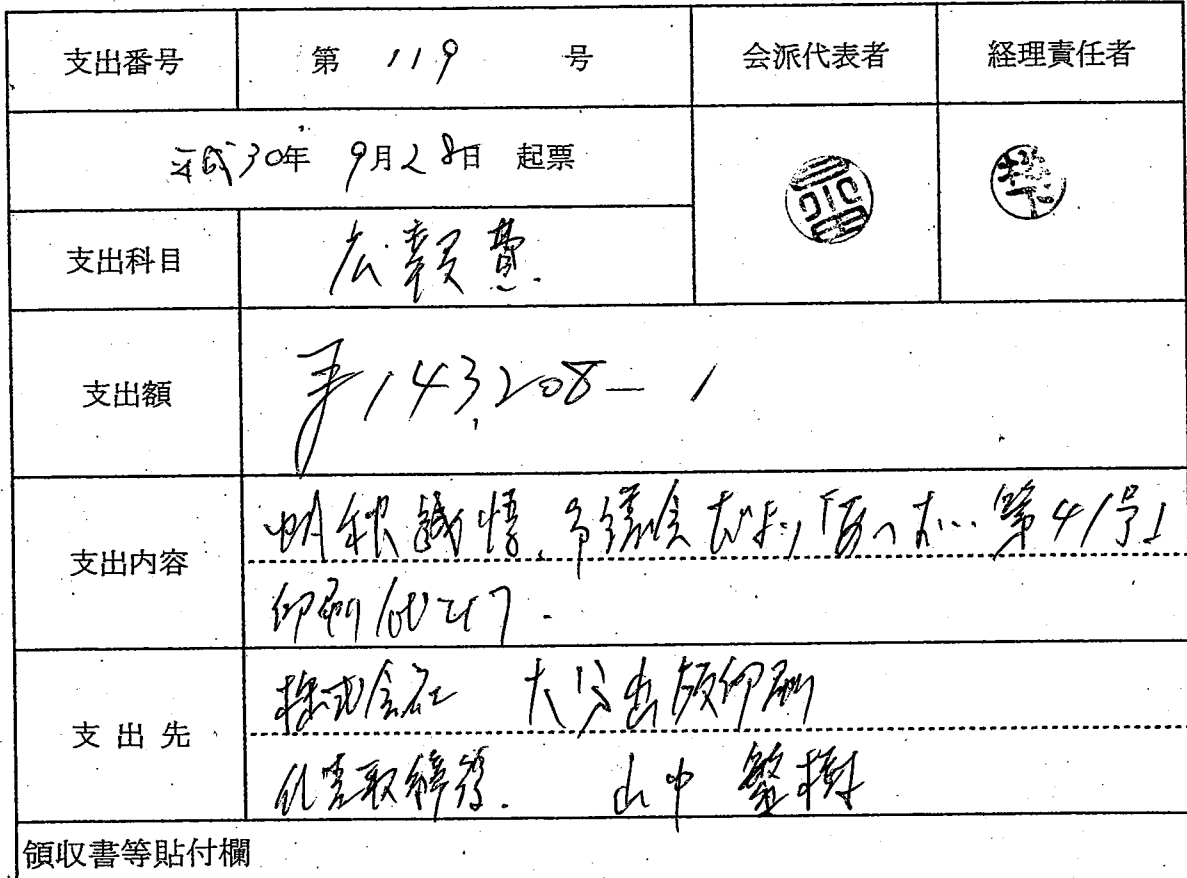 支出番号 第 119 号 会派代表者 経理責任者
平成30年 9月28日 起票
支出科目 広報費.
支出額 ¥143,208-
支出内容 市議会だより「 第41号」
印刷代として.
支出先 株式会社 大分出版印刷
代表取締役. 山中 繁樹
領収書等貼付欄